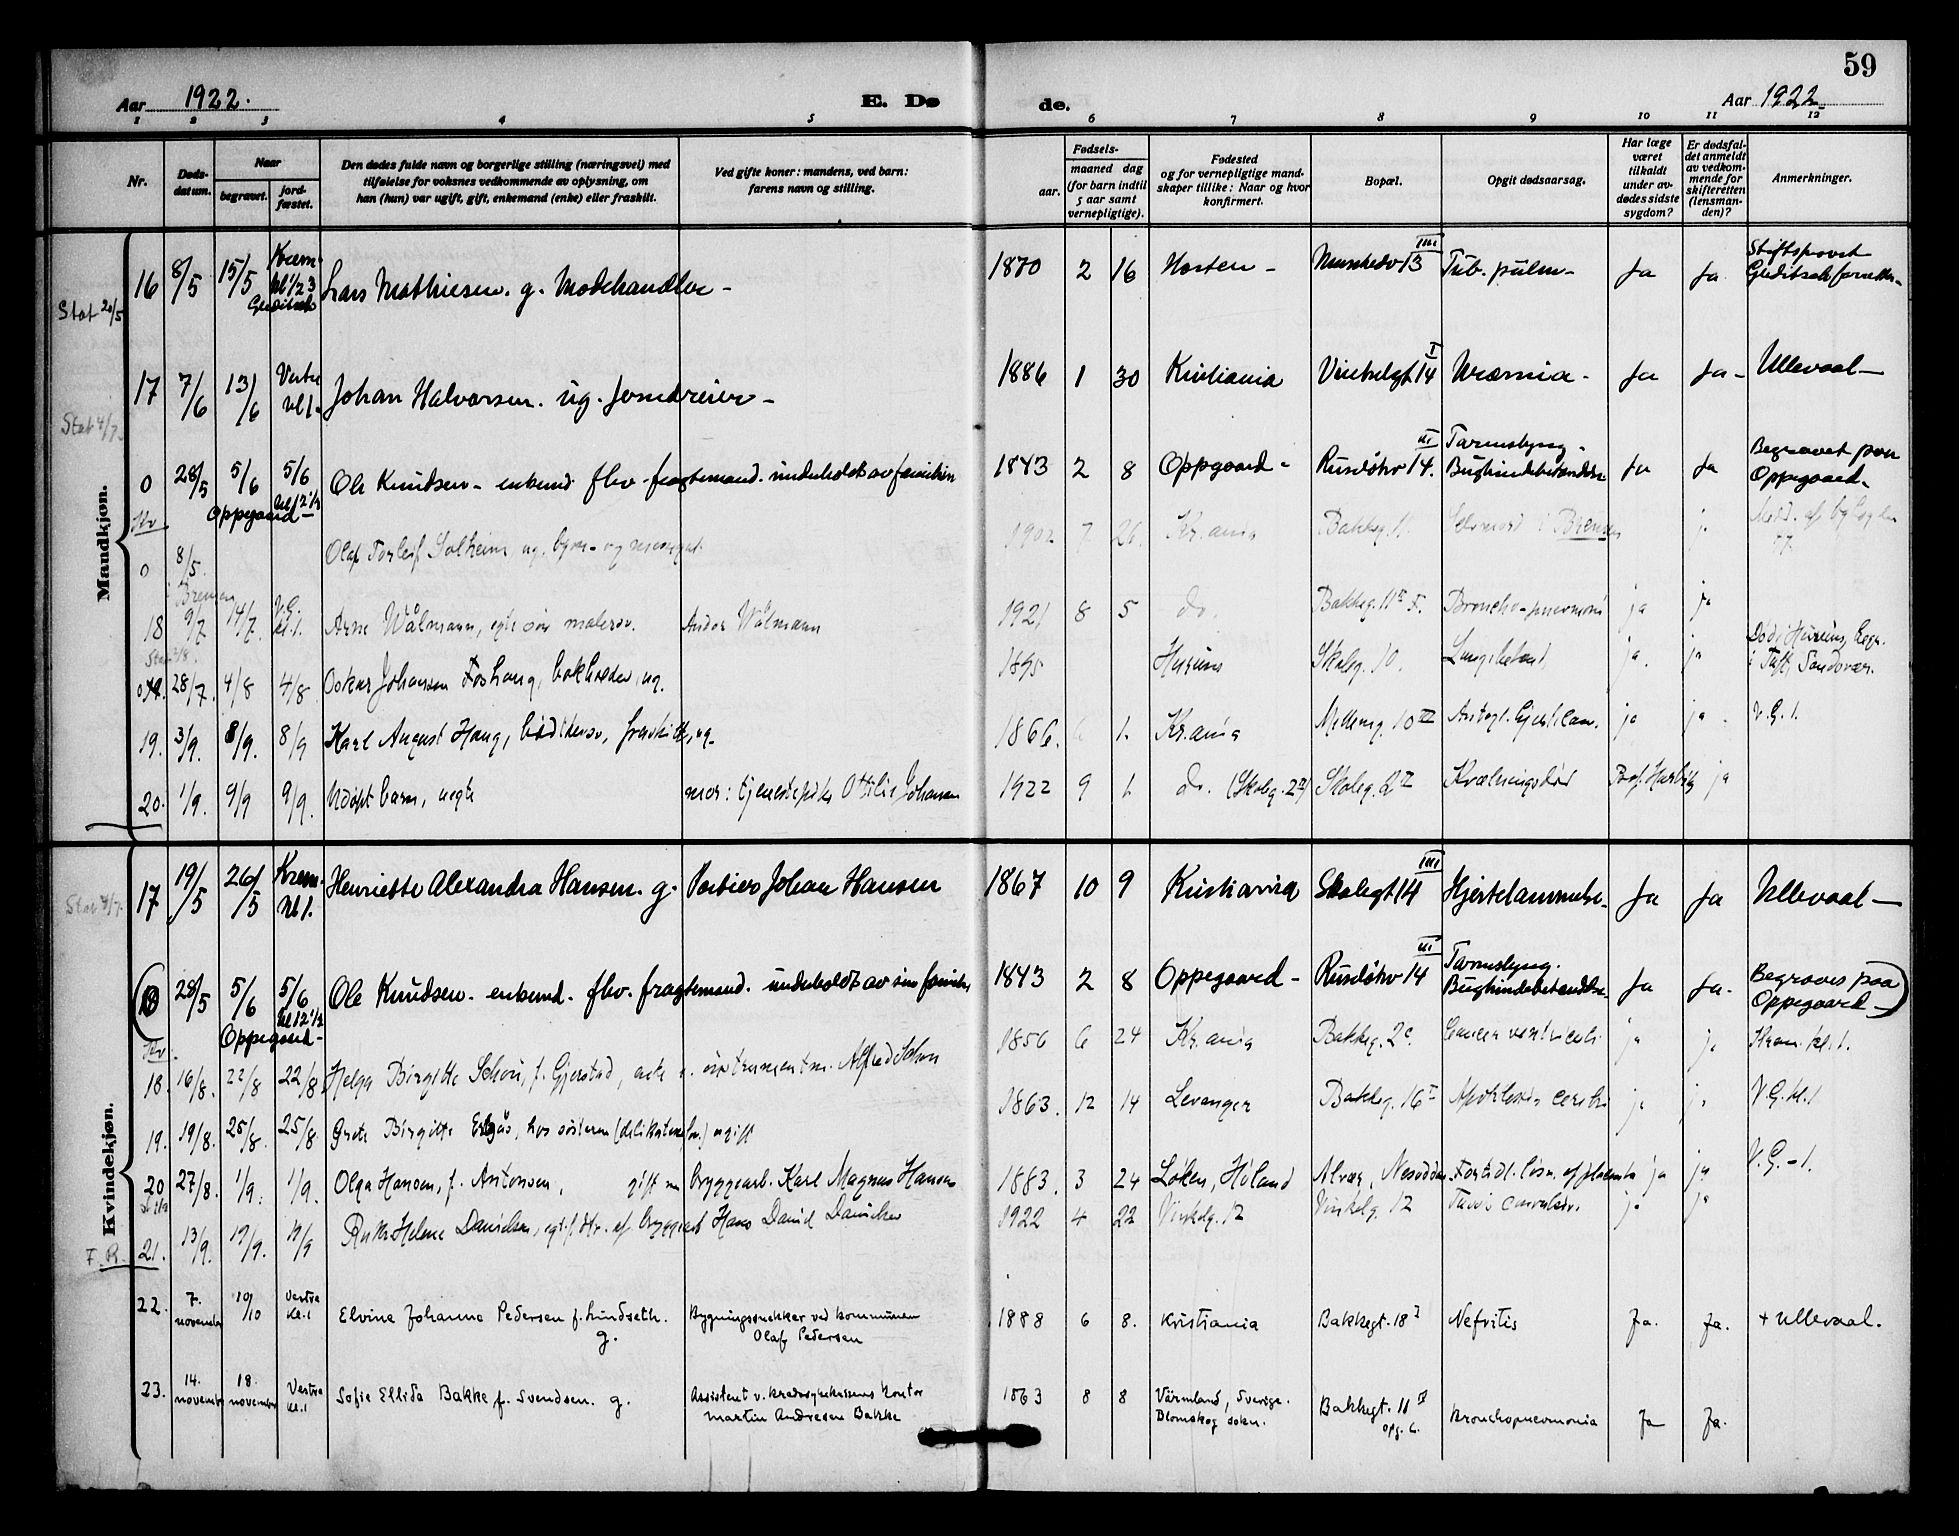 59
Aar 1922.
E. Dø
de.
Aar 1922.
1 2 3 4 5 6 7 8 9 10 11 12
Nr.
Døds-
datum.
Naar
begravet.
jord-
fæstet.
Den dødes fulde navn og borgerlige stilling (næringsvei) med
tilføielse for voksnes vedkommende av oplysning, om
han (hun) var ugift, gift, enkemand (enke) eller fraskilt.
Ved gifte koner: mandens, ved barn:
farens navn og stilling.
Fødsels-
aar.
maaned dag
(for barn indtil
5 aar samt
vernepligtige).
Fødested
og for vernepligtige mand-
skaper tillike: Naar og hvor
konfirmert.
Bopæl.
Opgit dødsaarsag.
Har læge
været
tilkaldt
under av-
dødes sidste
sygdom?
Er dødsfal-
det anmeldt
av vedkom-
mende for
skifteretten
(lensman-
den)?
Anmerkninger.
Mandkjøn.
16 8/5 15/5 Krem. kl 1/2 3 Lars Mathiesen. g. Modehandler - 1870 2 16 Horten - 13 III Tub. pulm - Ja Ja Stiftsprovst
17 7/6 13/6 Vestre kl 1 Johan Halvorsen. ug. 1886 1 30 Kristiania Vinkelgt 14 I Uræmia - Ja Ja - Ullevaal -
Stat 4/7
0 28/5 5/6 5/6 kl 12 1/2 Ole Knudsen - enkemd. fhv. fragtemand. underholdt av familien 1843 2 8 Oppegaard - Ruseløkv 14. III Tarmslyng - Bughindebetændelse Ja Ja Begravet paa
Oppegaard Oppegaard -
0 8/5. Bremen Olaf Torleif Solheim ug. 1902 7 26. Kr.ania Bakkeg. 11. Selvmord i Bremen j
18 9/7 14/7. V.G. kl. 1. Arne Wålmann, egte søn Andor Wålmann 1921 8 5 do. Bakkeg. 11 Broncho-pneumoni ja ja
28/7. 4/8 4/8 Oskar Johansen Foshaug, bokholder, ug. 1895 Hurum Skoleg. 10. Lungebetænd. ja. ja Død i Hurum, begr.
i Sandsvær.
19. 3/9. 8/9. 8/9 Karl August Haug, fraskilt, 1866. 1. Kr.ania Mølleng. 10 III ja ja. V.G. 1.
20. 1/9. 9/9 9/9. Udøpt barn, uegte mor: tjenestepike Ottilie Johansen 1922 9 1. do. (Skoleg. 2 II) Skoleg. 2 II Kvælningsdød ja
Kvindekjøn.
Stat 4/7.
17 19/5 26/5 Krem. kl 1. Henriette Alexandra Hansen. g. Portier Johan Hansen 1867 10 9 Kristiania Skolegt 14 III Hjertelammelse. Ja Ja Ullevaal -
18 28/5 5/6 5/6 kl 12 1/2 Ole Knudsen. enkemd. fhv. fragtemand. underholdt av sin familie 1843 2 8 Oppegaard - Ruseløkv 14 III Tarmslyng. Bughindebetændelse. Ja Ja. Begraves paa
Oppegaard - Oppegaard -
18. 16/8. 22/8 22/8 Helga Birgitte Schou, f. Gjerstad, enke e. instrumentm. Alfred Schou 1856 6 24 Kr.ania Bakkeg. 2 c. Cancer ventriculi ja ja Krem. kl. 1.
19. 19/8. 25/8. 25/8. Grete Birgitte hos søsteren ugift 1863. 12 14 Levanger Bakkeg. 16 I Apoklexia cerebri V.G. kl. 1
20 27/8. 1/9. 1/9. Olga Hansen, f. Antonsen, gift m. bryggearb. Karl Magnus Hansen 1883. 3 24 Løken, Høland Alvær, Nesodden. Fortidl. løsn. af placenta ja ja V.G. - 1.
F. R. 21. 13/9. 19/9. 19/9 Ruth Helene Danielsen, egtef. dtr. af bryggearb Hans David Danielsen 1922 4 22 Vinkelg. 12 Vinkelg. 12 ja ja
22. 7. november 10/10 Vestre kl. 1 Elvina Johanna Pedersen f. Lundseth. Bygningssnekker ved kommunen 1888 6 8. Kristiania Bakkegt. 18 I Nefritis Ja. Ja. + Ullevaal.
g. Olaf Pedersen
23. 14. november 18. november Vestre kl. 1 Sofie Ellida Bakke f. Svendsen. g. Assistent v. kredssykekassens kontor 1863 8 8 Värmland, Sverige. Bakkegt. 11 Bronchopneumonia Ja Ja.
Martin Andresen Bakke Blomskog soken. opg. 6.